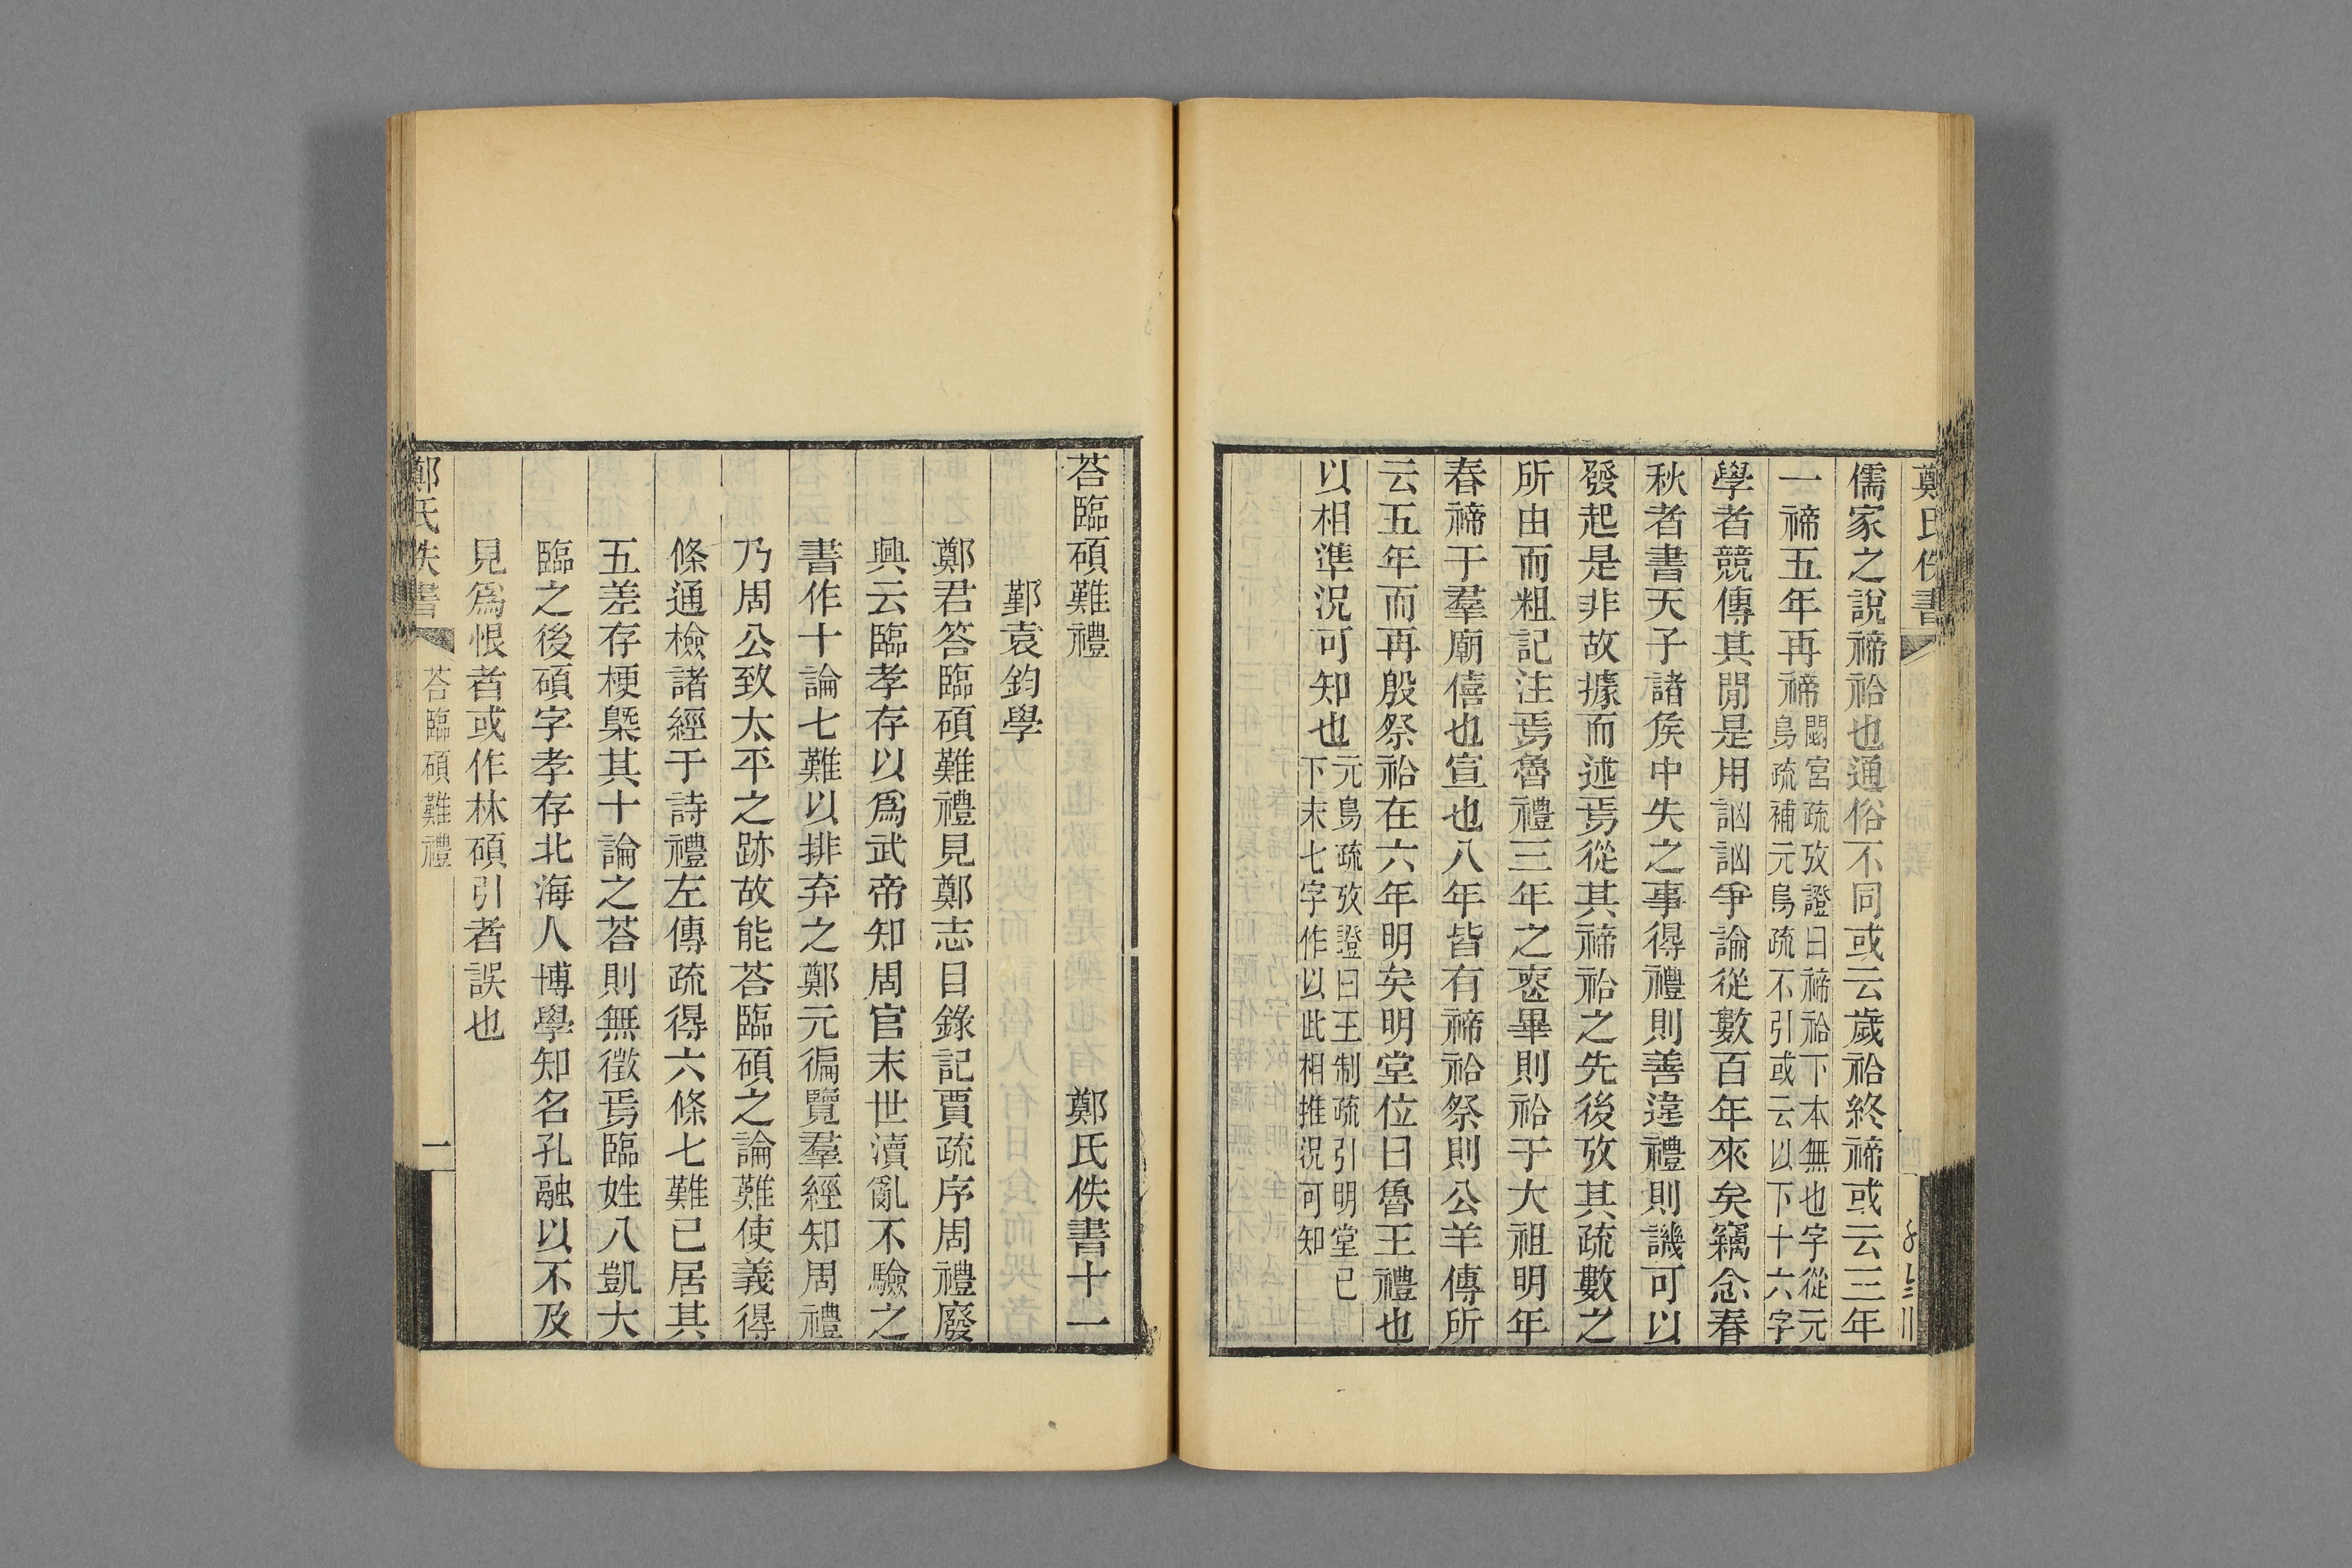 鄭氏佚書
儒家之說禘祫也通俗不同或云歲祫終禘或云三年
一禘五年再禘
閟宮疏攷證曰禘祫下本無也字從元
鳥疏補元鳥疏不引或云以下十六字
學者競傳其閒是用訩訩爭論從數百年來矣竊念春
秋者書天子諸矦中失之事得禮則善違禮則譏可以
發起是非故據而述焉從其禘祫之先後攷其疏數之
所由而粗記注焉魯禮三年之喪畢則祫于大祖明年
春禘于羣廟僖也宣也八年皆有禘祫祭則公羊傳所
云五年而再殷祭祫在六年明矣明堂位曰魯王禮也
以相準況可知也
元鳥疏攷證曰王制疏引明堂已
下末七字作以此相推況可知
荅臨碩難禮 鄭氏佚書十一
鄞袁鈞學
鄭君答臨碩難禮見鄭志目錄記賈疏序周禮廢
興云臨孝存以爲武帝知周官末世瀆亂不驗之
書作十論七難以排弃之鄭元徧覽羣經知周禮
乃周公致太平之跡故能荅臨碩之論難使義得
條通檢諸經于詩禮左傳疏得六條七難已居其
五差存梗槩其十論之荅則無徵焉臨姓八凱大
臨之後碩字孝存北海人博學知名孔融以不及
見爲恨者或作林碩引者誤也
鄭氏佚書
荅臨碩難禮
一